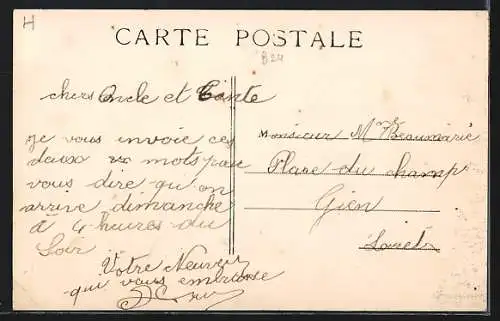 H
CARTE POSTALE
B24
chers Oncle et Tante
je vous invoie ces
deux mots pour
vous dire qu'on
arrive dimanche
à 4 heures du
Soir
Votre Neuveu
qui vous embrasse
Monsieur Mme Beauvairie
Place du champ
Gien
Loiret